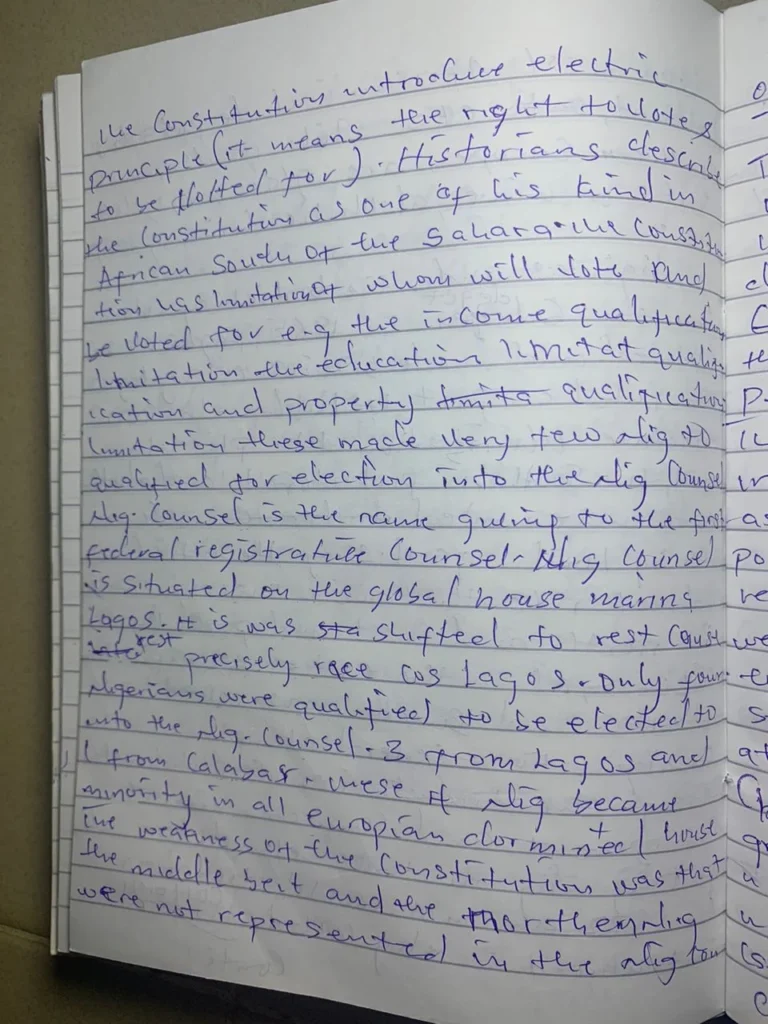 The Constitution introduce electric
principle (it means the right to vote &
to be votted for). Historians describe
the Constitution as one of his kind in
African South of the Sahara. The Constitu
tion has limitation of whom will vote and
be voted for e.g the income qualification
limitation the education limitat qualif
ication and property limita qualification
limitation these made very few Nig to
qualified for election into the Nig Counsel
Nig. Counsel is the name giving to the first
federal registrative Counsel. Nig Counsel
is situated on the global house marina
Lagos. It is was sta shifted to rest
rest precisely race cos Lagos. Only four
Nigerians were qualified to be elected to
into the Nig. Counsel. 3 from Lagos and
1 from Calabar. These 4 Nig became
minority in all europian dorminted house
The weakness of the Constitution was that
the middle belt and the Northern Nig
were not represented in the Nig Coun